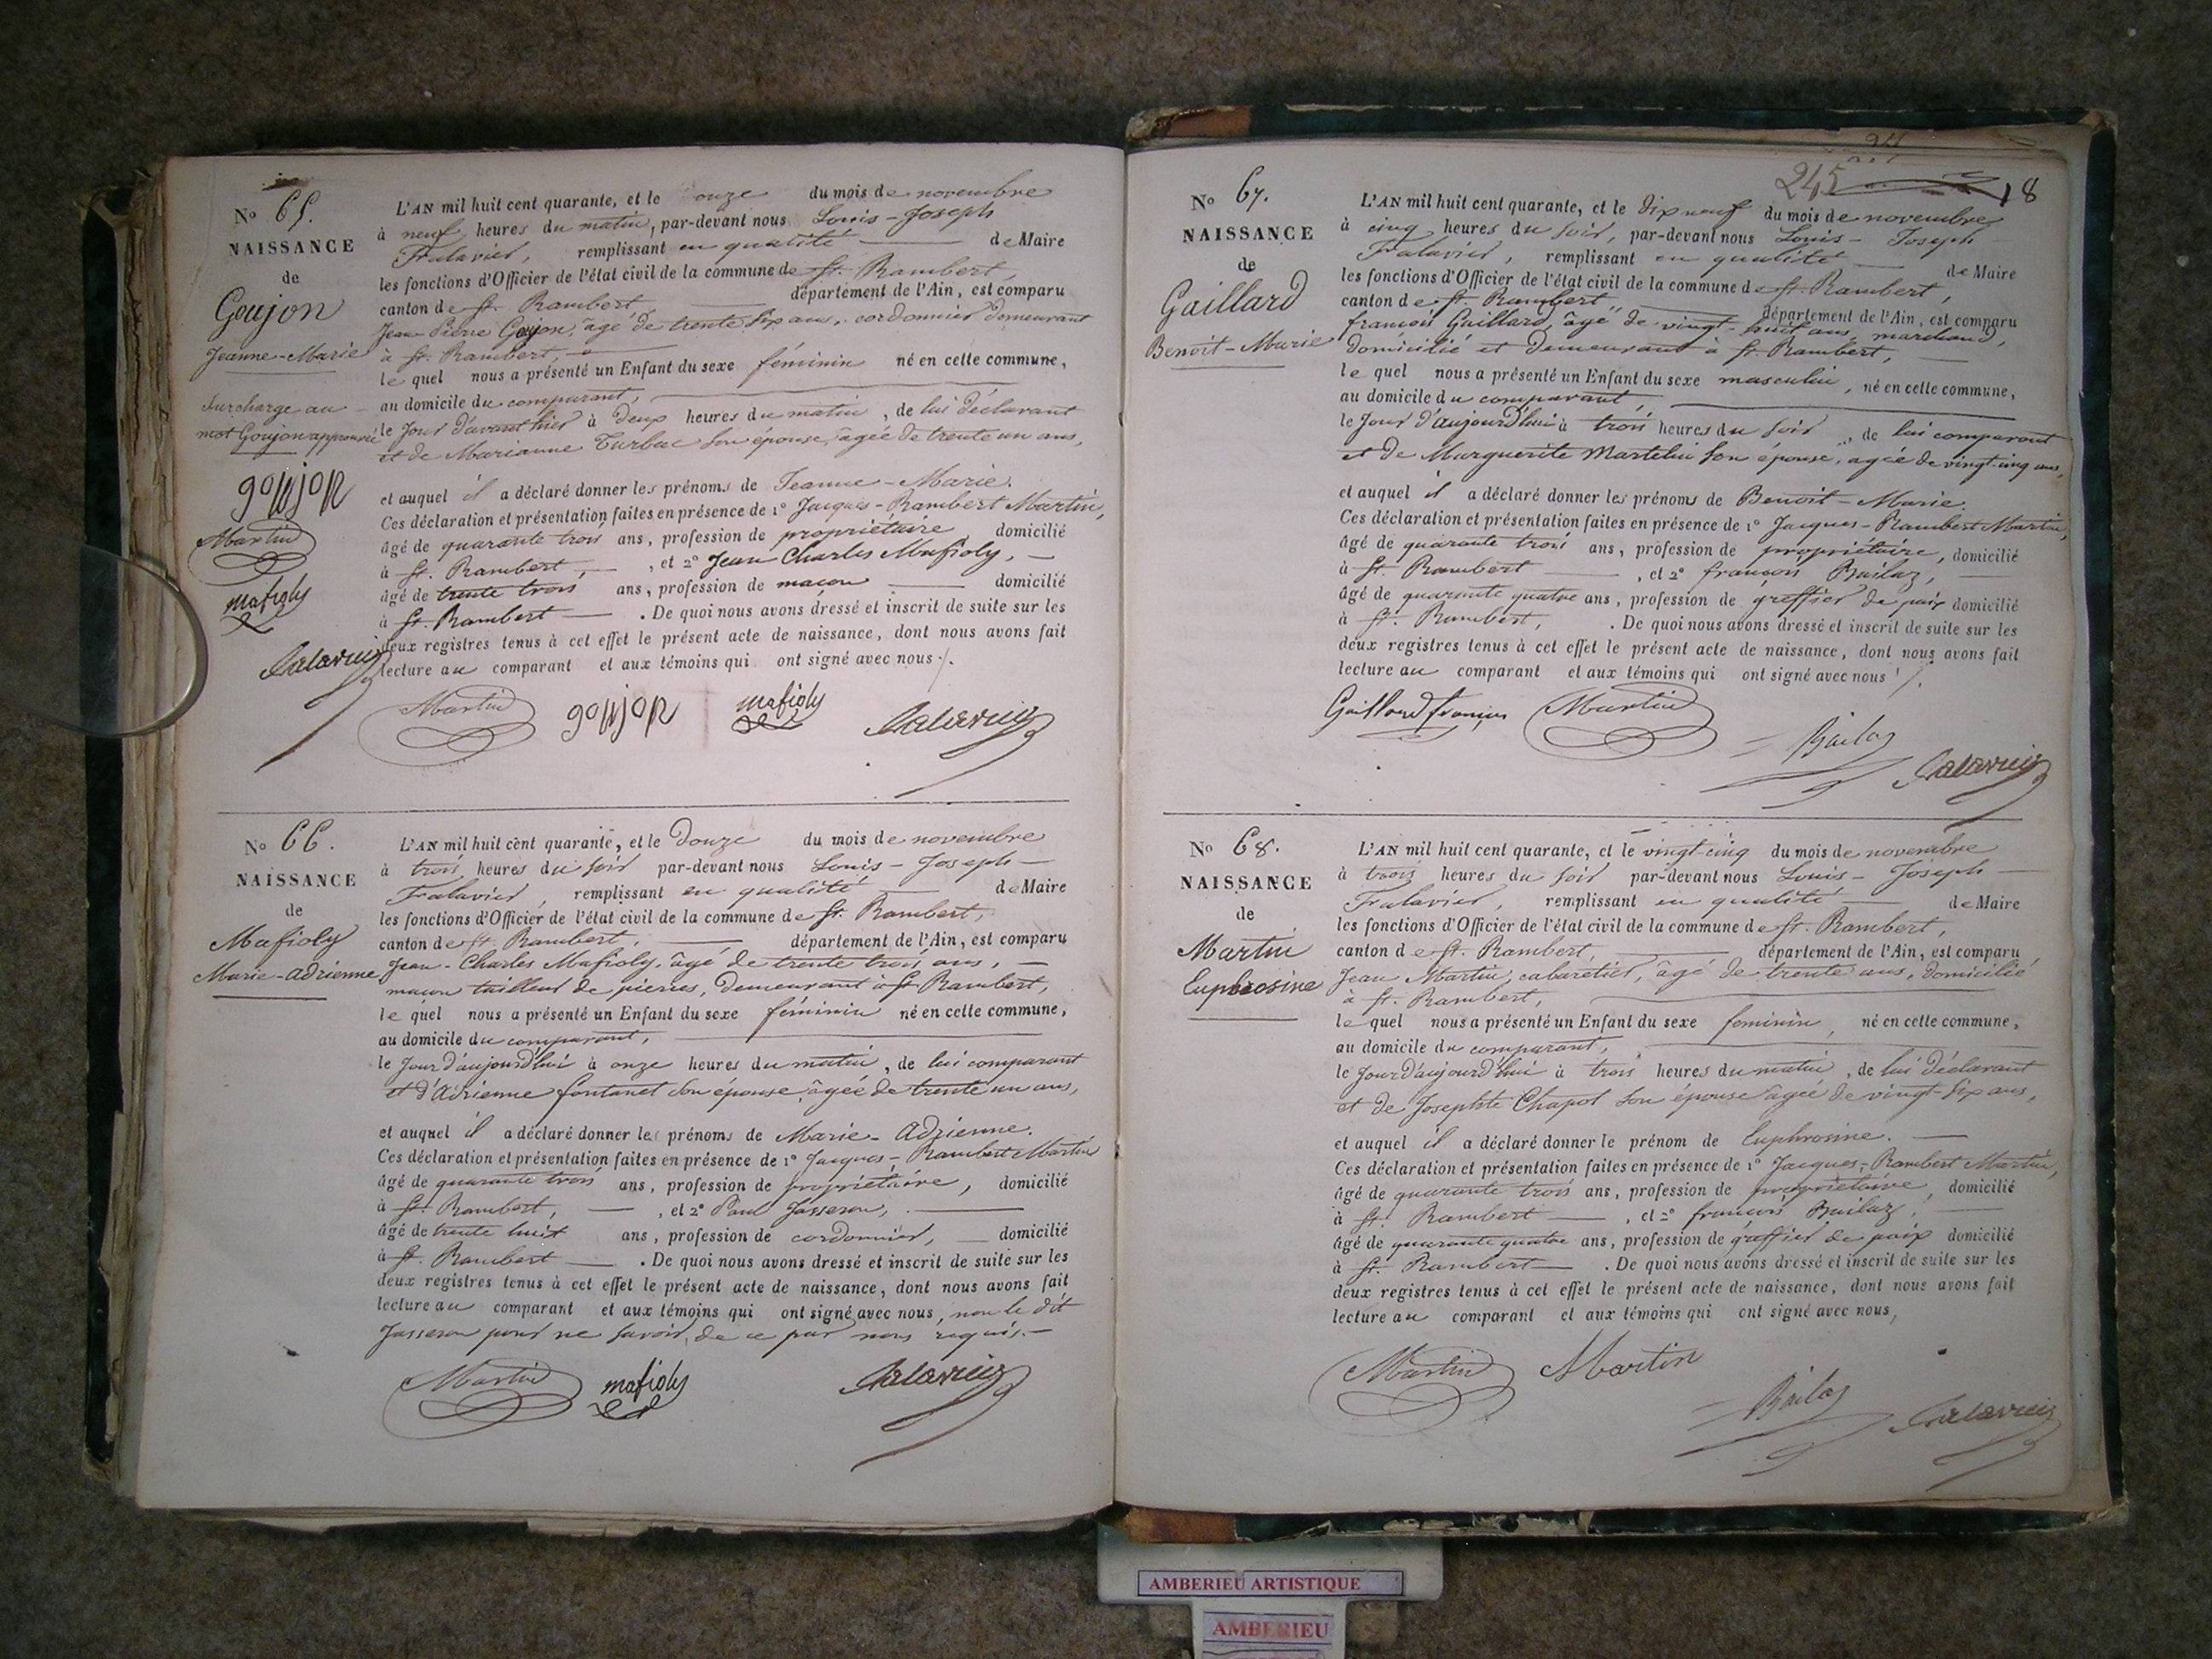 No 65.
NAISSANCE
de
Goujon
Jeanne-Marie
Surcharge au
mot Goujon approuvée
goujon
Martin
mafioly
L'AN mil huit cent quarante, et le onze du mois de novembre
à neuf heures du matin, par-devant nous Louis-Joseph
remplissant en qualité de Maire
les fonctions d'Officier de l'état civil de la commune de St. Rambert,
canton de St. Rambert, département de l'Ain, est comparu
Jean Pierre Goujon, âgé de trente six ans, cordonnier demeurant
à St. Rambert,
lequel nous a présenté un Enfant du sexe féminin né en cette commune,
au domicile du comparant,
le jour d'avant hier à deux heures du matin, de lui déclarant
et de Marianne son épouse, âgée de trente un ans,
et auquel il a déclaré donner les prénoms de Jeanne-Marie.
Ces déclaration et présentation faites en présence de 1o Jacques-Rambert Martin,
âgé de quarante trois ans, profession de propriétaire domicilié
à St. Rambert, , et 2o Jean Charles Mafioly,
âgé de trente trois ans, profession de maçon domicilié
à St. Rambert . De quoi nous avons dressé et inscrit de suite sur les
deux registres tenus à cet effet le présent acte de naissance, dont nous avons fait
lecture au comparant et aux témoins qui ont signé avec nous ./.
Martin goujon mafioly
No 66.
NAISSANCE
de
Mafioly
Marie-Adrienne
L'AN mil huit cent quarante, et le Douze du mois de novembre
à trois heures du soir par-devant nous Louis-Joseph
remplissant en qualité de Maire
les fonctions d'Officier de l'état civil de la commune de St. Rambert,
canton de St. Rambert, département de l'Ain, est comparu
Jean-Charles Mafioly, âgé de trente trois ans,
maçon tailleur de pierres, demeurant à St Rambert,
lequel nous a présenté un Enfant du sexe féminin né en cette commune,
au domicile du comparant,
le jour d'aujourd'hui à onze heures du matin, de lui comparant
et d'Adrienne fontanet son épouse âgée de trente un ans,
et auquel il a déclaré donner les prénoms de Marie-Adrienne.
Ces déclaration et présentation faites en présence de 1o Jacques-Rambert Martin
âgé de quarante trois ans, profession de propriétaire, domicilié
à St. Rambert, , et 2o Paul Jasseron,
âgé de trente huit ans, profession de cordonnier, domicilié
à St. Rambert . De quoi nous avons dressé et inscrit de suite sur les
deux registres tenus à cet effet le présent acte de naissance, dont nous avons fait
lecture au comparant et aux témoins qui ont signé avec nous, non le dit
Jasseron pour ne savoir, de ce par nous requis.
Martin mafioly
245 18
No 67.
NAISSANCE
de
Gaillard
Benoit-Marie
L'AN mil huit cent quarante, et le dix neuf du mois de novembre
à cinq heures du soir, par-devant nous Louis-Joseph
remplissant en qualité de Maire
les fonctions d'Officier de l'état civil de la commune de St. Rambert,
canton de St. Rambert département de l'Ain, est comparu
françois Gaillard, âgé de vingt-huit ans, marchand,
domicilié et demeurant à St. Rambert,
lequel nous a présenté un Enfant du sexe masculin, né en cette commune,
au domicile du comparant,
le jour d'aujourd'hui à trois heures du soir, de lui comparant
et de Marguerite Martelin son épouse, agée de vingt-cinq ans,
et auquel il a déclaré donner les prénoms de Benoit-Marie.
Ces déclaration et présentation faites en présence de 1o Jacques-Rambert Martin,
âgé de quarante trois ans, profession de propriétaire, domicilié
à St. Rambert , et 2o françois Bailaz,
âgé de quarante quatre ans, profession de greffier de paix domicilié
à St. Rambert, . De quoi nous avons dressé et inscrit de suite sur les
deux registres tenus à cet effet le présent acte de naissance, dont nous avons fait
lecture au comparant et aux témoins qui ont signé avec nous ./.
Gaillard françois Martin Bailaz
No 68.
NAISSANCE
de
Martin
Euphrosine
L'AN mil huit cent quarante, et le vingt-cinq du mois de novembre
à trois heures du soir par-devant nous Louis-Joseph
remplissant en qualité de Maire
les fonctions d'Officier de l'état civil de la commune de St. Rambert,
canton de St. Rambert, département de l'Ain, est comparu
Jean Martin, cabaretier, âgé de trente ans, domicilié
à St. Rambert,
lequel nous a présenté un Enfant du sexe feminin, né en cette commune,
au domicile du comparant,
le jour d'aujourd'hui à trois heures du matin, de lui déclarant
et de Josephte Chapot son épouse âgée de vingt-six ans,
et auquel il a déclaré donner le prénom de Euphrosine.
Ces déclaration et présentation faites en présence de 1o Jacques-Rambert Martin,
âgé de quarante trois ans, profession de propriétaire, domicilié
à St. Rambert , et 2o françois Bailaz,
âgé de quarante quatre ans, profession de greffier de paix domicilié
à St. Rambert . De quoi nous avons dressé et inscrit de suite sur les
deux registres tenus à cet effet le présent acte de naissance, dont nous avons fait
lecture au comparant et aux témoins qui ont signé avec nous,
Martin Martin Bailaz
AMBERIEU ARTISTIQUE
AMBERIEU